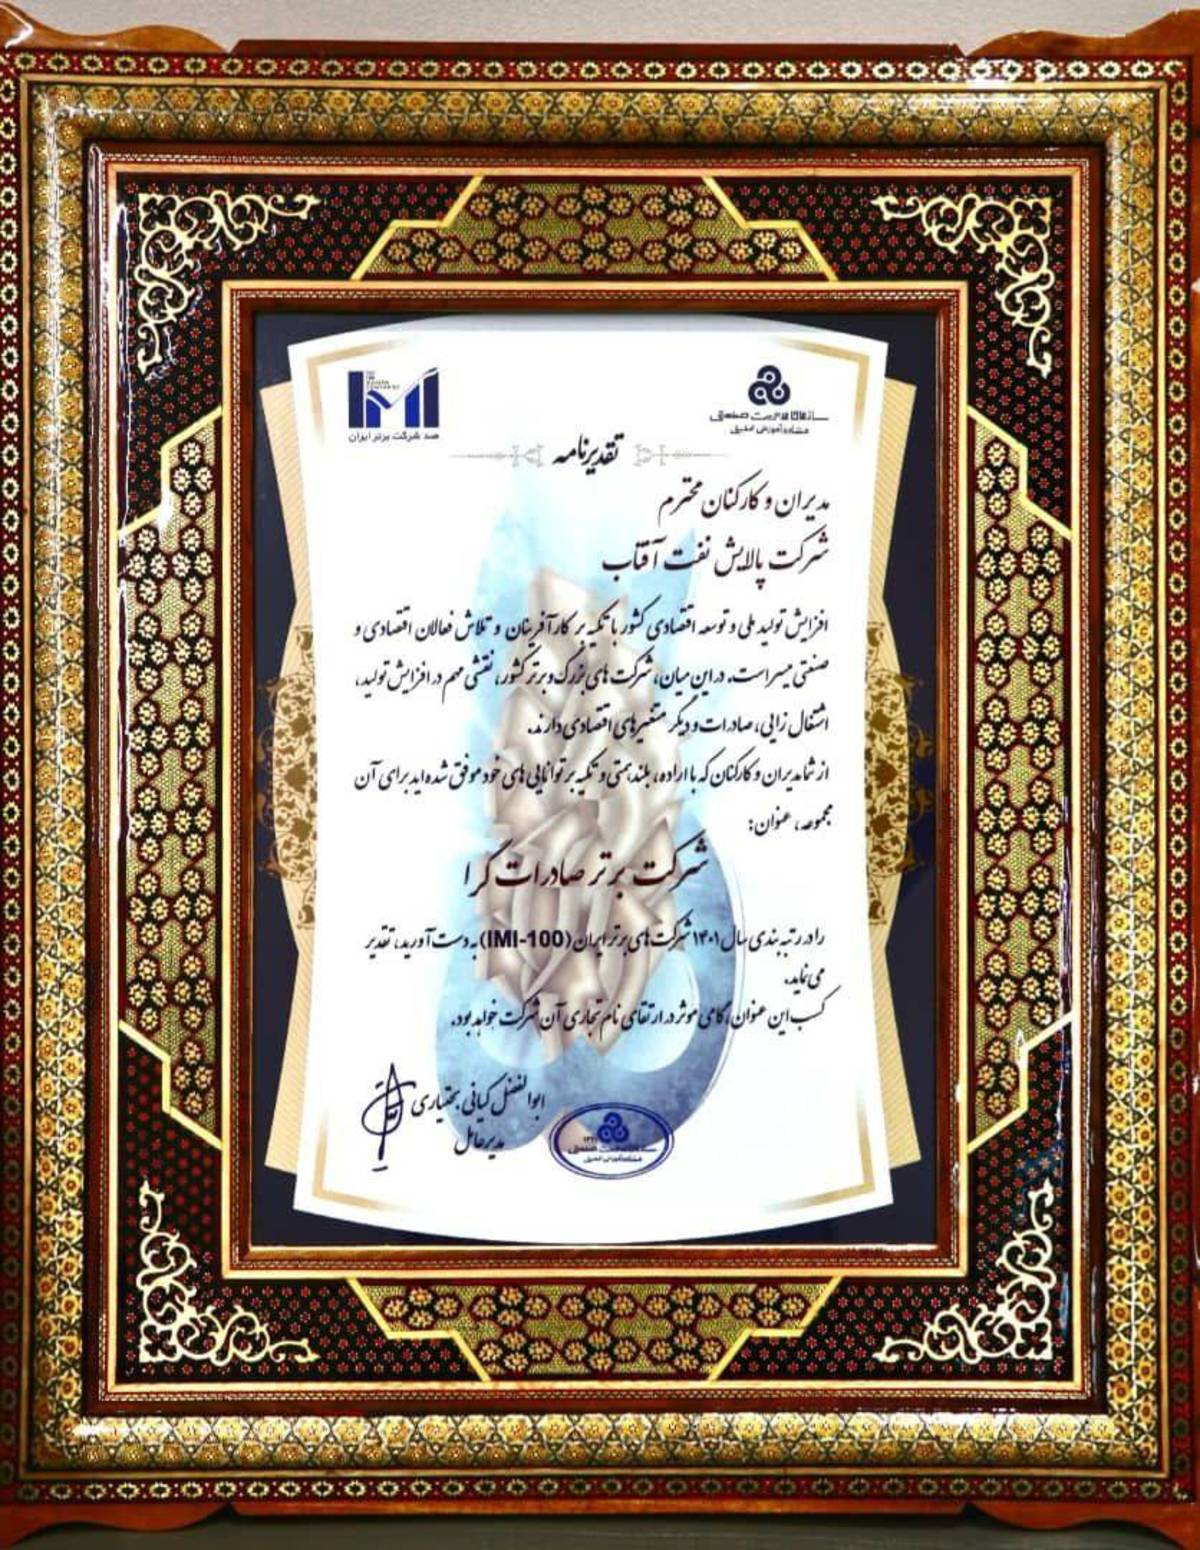 صد شرکت برتر ایران
سازمان مدیریت صنعتی
مشاوره آموزش تحقیق
تقدیرنامه
مدیران و کارکنان محترم
شرکت پالایش نفت آفتاب
افزایش تولید ملی و توسعه اقتصادی کشور با تکیه بر کارآفرینان و تلاش فعالان اقتصادی و
صنعتی میسر است. در این میان، شرکت های بزرگ و برتر کشور، نقشی مهم در افزایش تولید،
اشتغال زایی، صادرات و دیگر متغیرهای اقتصادی دارند.
از شما مدیران و کارکنان که با اراده، بلند همتی و تکیه بر توانایی های خود موفق شده اید برای آن
مجموعه، عنوان:
شرکت برتر صادرات گرا
را در رتبه بندی سال ۱۴۰۱ شرکت های برتر ایران (IMI-100) به دست آورید، تقدیر
می نماید.
کسب این عنوان، گامی موثر در ارتقای نام تجاری آن شرکت خواهد بود.
ابوالفضل کیانی بختیاری
مدیرعامل
سازمان مدیریت صنعتی
مشاوره آموزش تحقیق